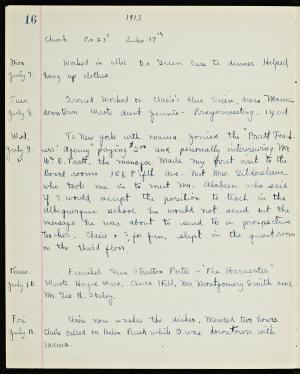 16
1913
Church Ps 23rd Luke 17th
Mon. Worked in attic. Dr Green here to dinner Helped
July 7. hang up clothes.
Tues. Ironed Worked on Claire's blue linen dress Mama
July 8. downtown. Wrote Aunt Jennie. Prayermeeting.
Wed. To New York with mama. Joined the "Pratt Teach-
July 9. ers' Agency" paying $2.00 and personally interviewing Mr
Wm O. Pratt, the manager Made my first visit to the
Board rooms 156 Fifth Ave. Met Mrs.
who took me in to meet Mr. who said
if I would accept the position to teach in the
Albuquerque school he would not send out the
message he was about to send to a prospective
teacher. Claire & I, for fun, slept in the guestroom
on the third floor.
Thurs. Finished Gene Stratton Porter - "The Harvester"
July 10. Wrote Hope Ware, Clara Hill, Mr Montgomery Smith and
Mr. Geo H. Staley.
Fri. Claire now washes the dishes. Mended two hours.
July 11. Claire called on Helen Rush while I was downtown with
mama.